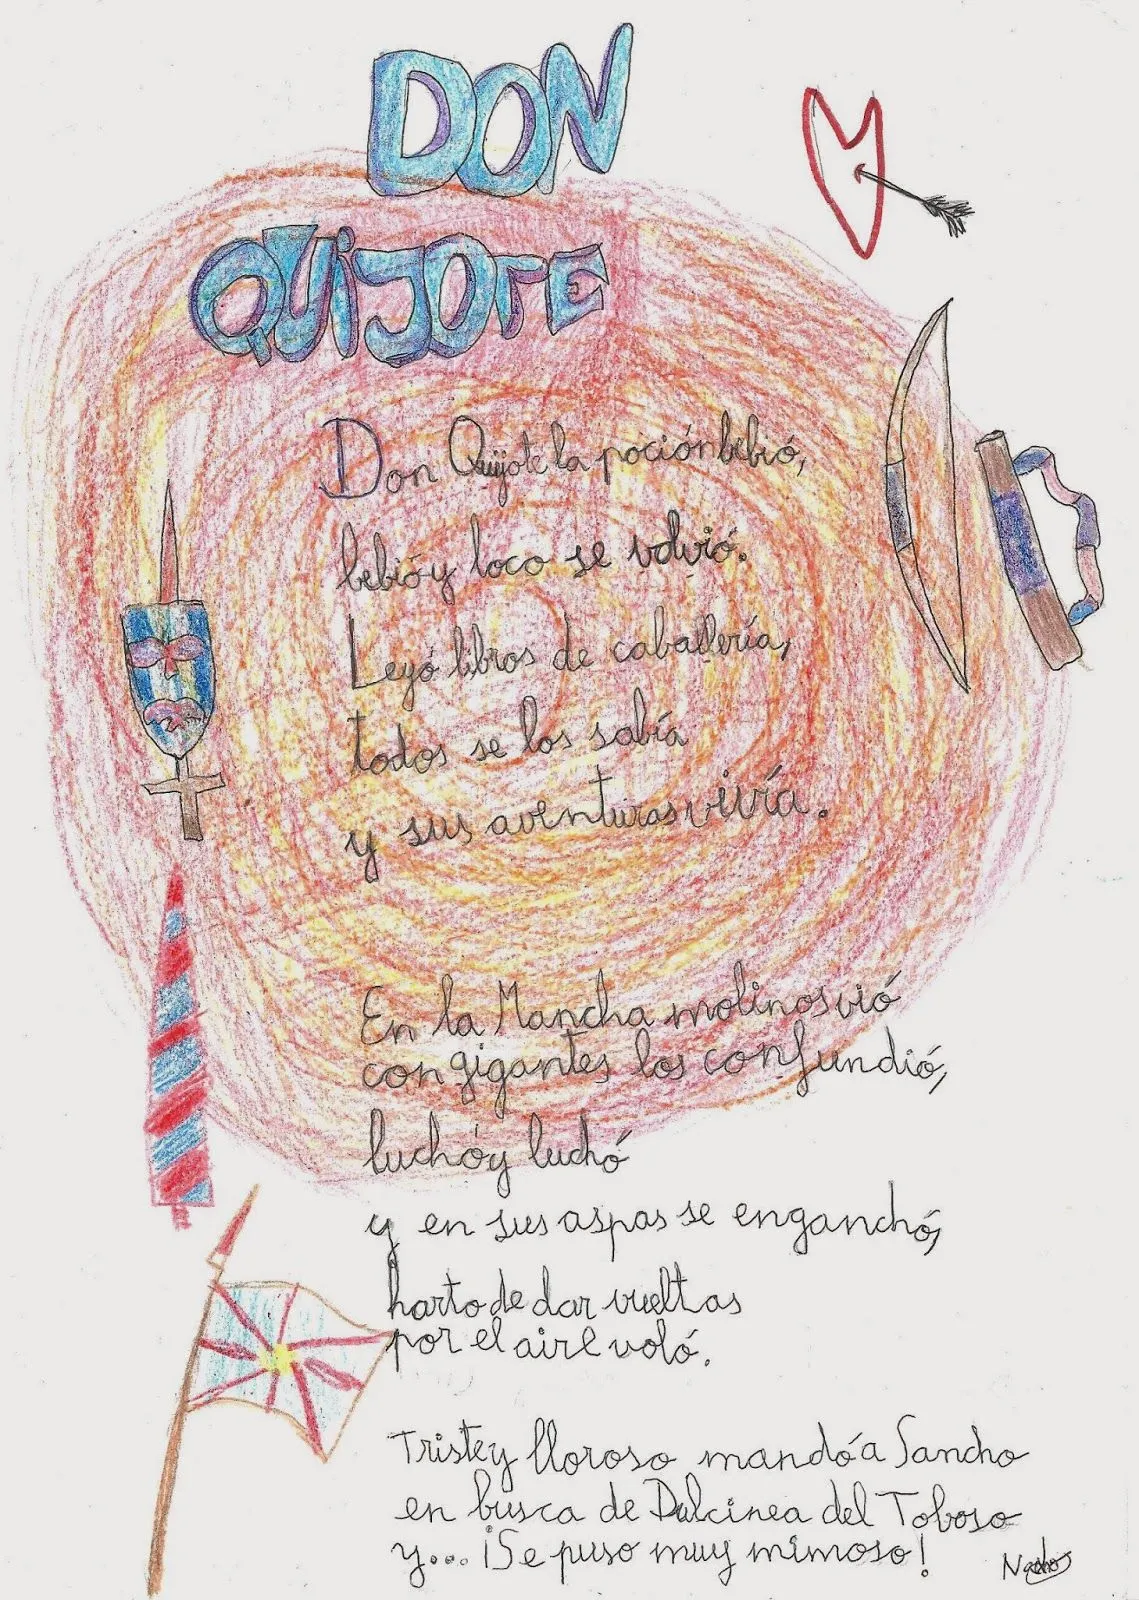 DON
QUIJOTE
Don Quijote la poción bebió,
bebió y loco se volvió.
Leyó libros de caballería,
todos se los sabía
y sus aventuras vivía.
En la Mancha molinos vió
con gigantes los confundió,
luchó y luchó
y en sus aspas se enganchó,
harto de dar vueltas
por el aire voló.
Triste y lloroso mandó a Sancho
en busca de Dulcinea del Toboso
y... ¡Se puso muy mimoso!
Nacho